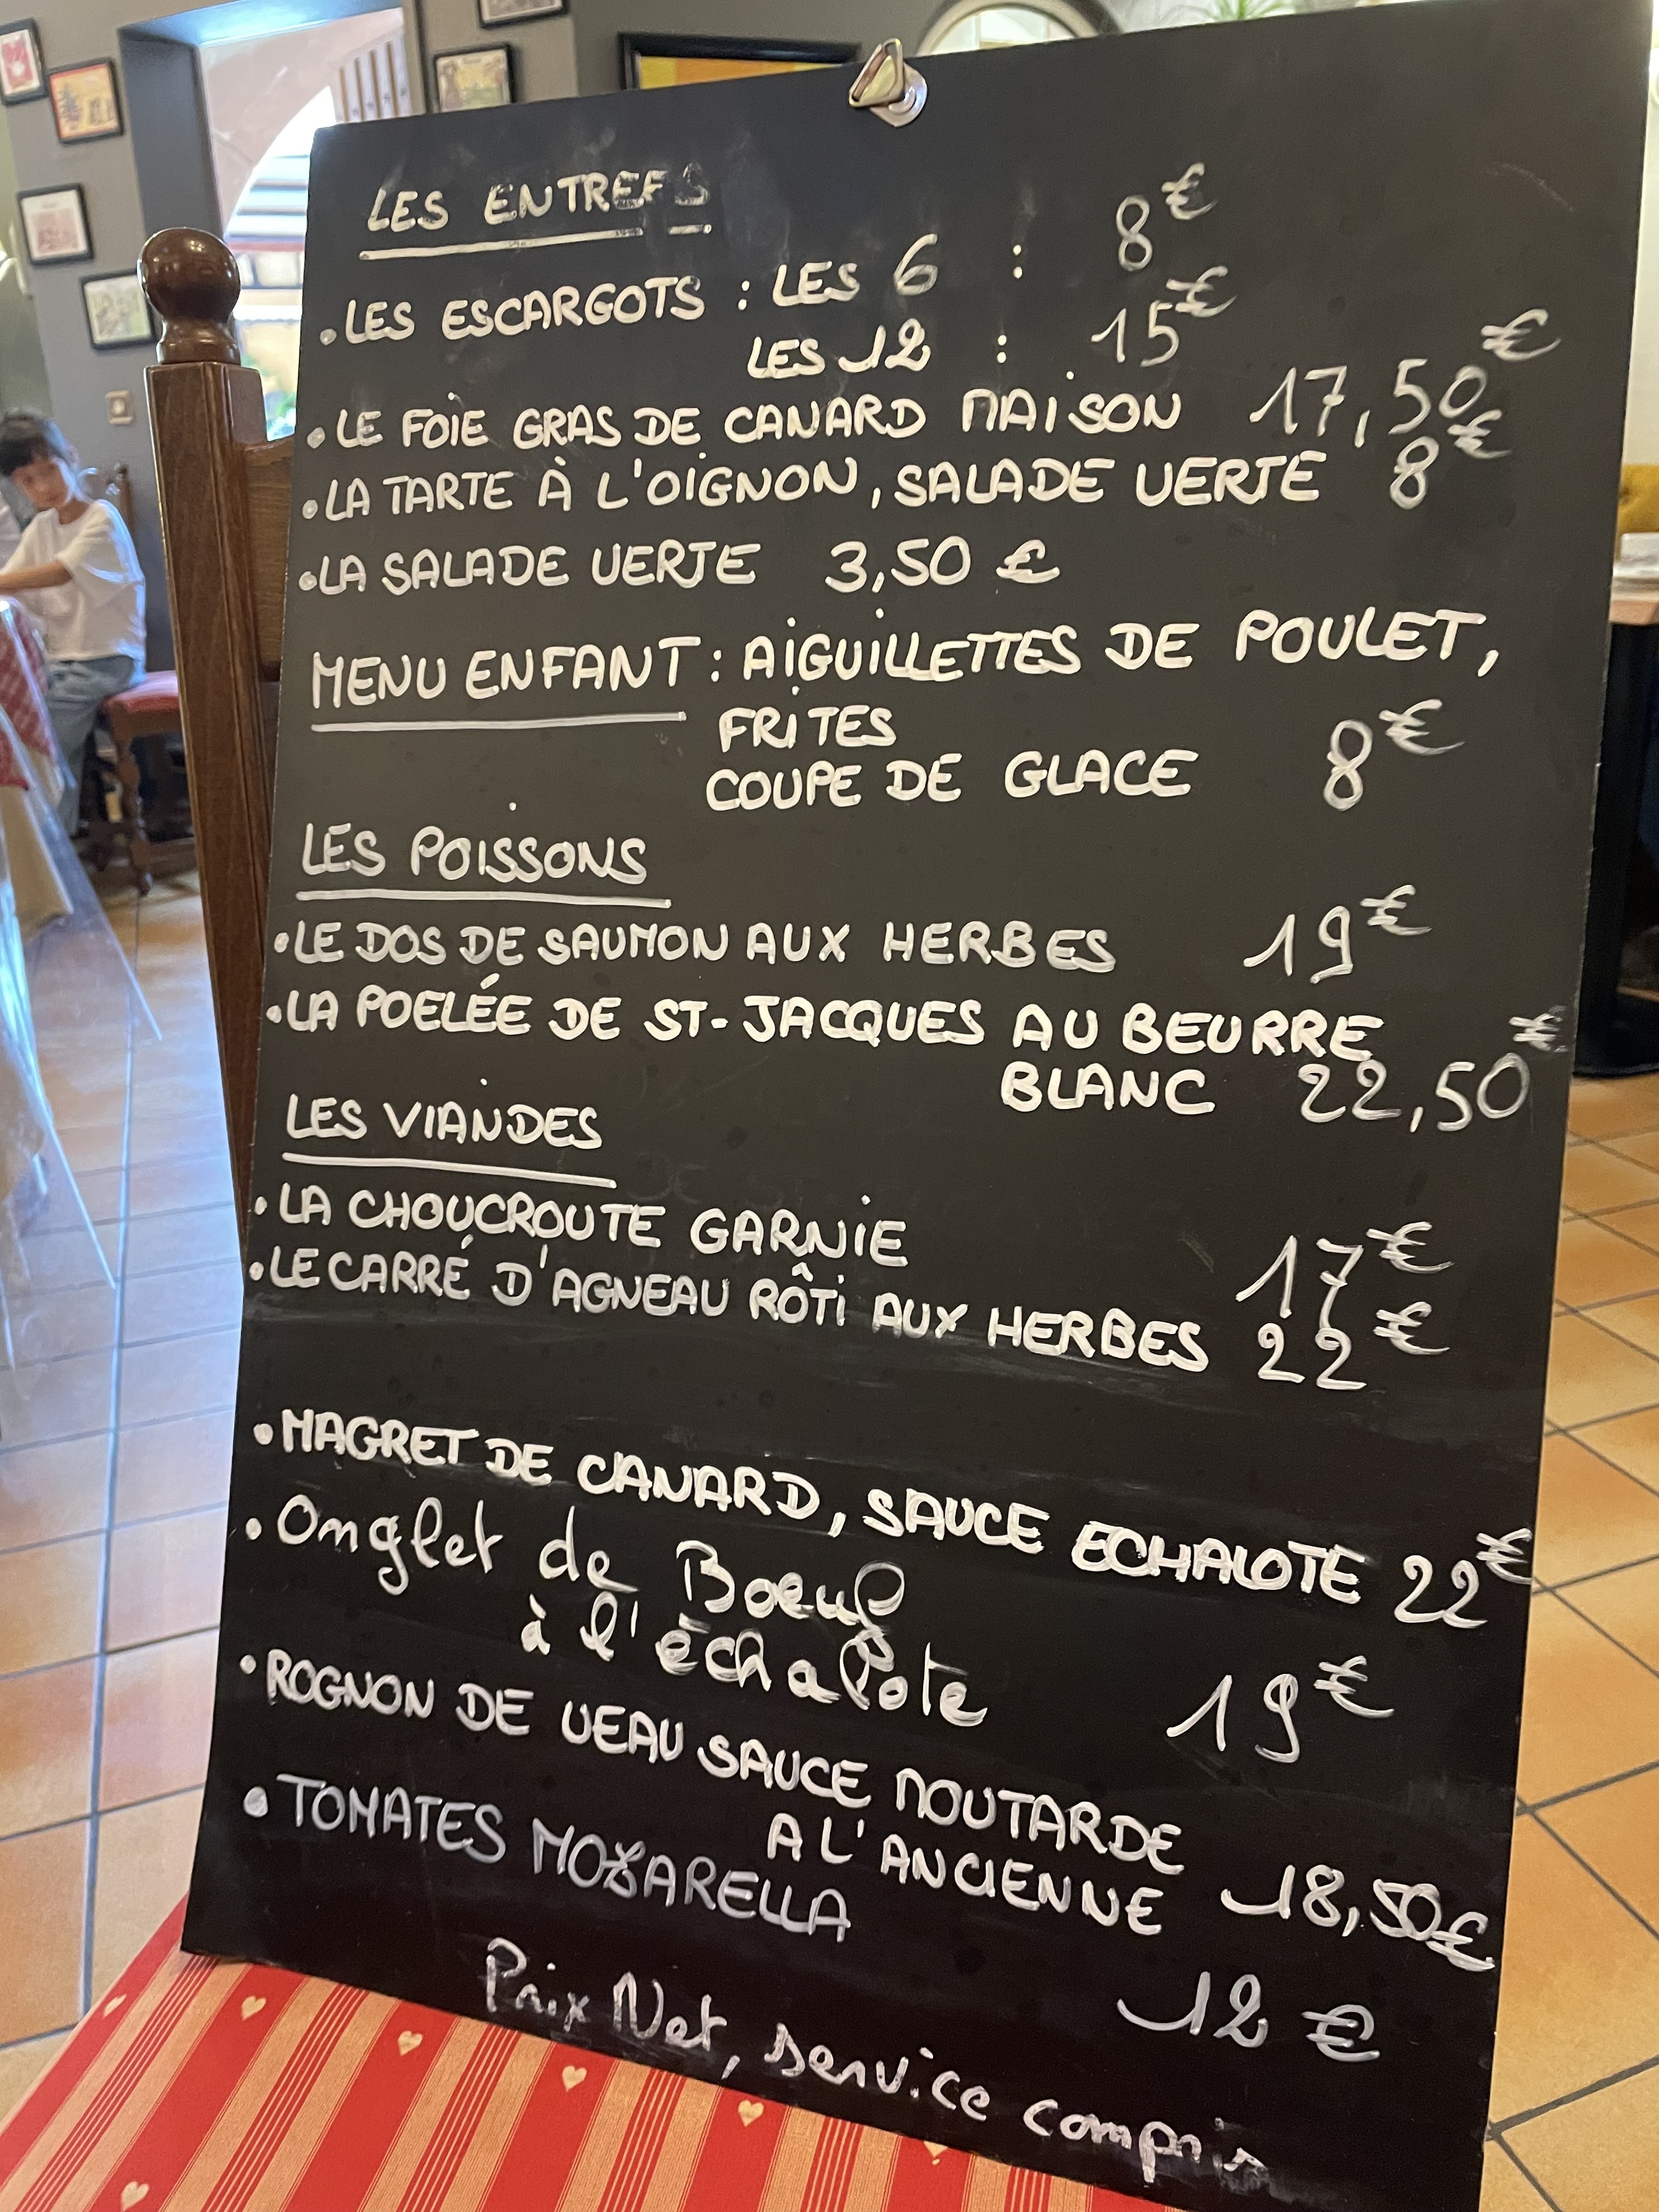 LES ENTREES
.LES ESCARGOTS : LES 6 : 8€
LES 12 : 15€
.LE FOIE GRAS DE CANARD MAISON 17,50€
.LA TARTE À L'OIGNON, SALADE VERTE 8€
.LA SALADE VERTE 3,50 €
MENU ENFANT : AIGUILLETTES DE POULET,
FRITES
COUPE DE GLACE 8€
LES POISSONS
.LE DOS DE SAUMON AUX HERBES 19€
.LA POELÉE DE ST-JACQUES AU BEURRE
BLANC 22,50€
LES VIANDES
.LA CHOUCROUTE GARNIE 17€
.LE CARRÉ D'AGNEAU RÔTI AUX HERBES 22€
.MAGRET DE CANARD, SAUCE ECHALOTE 22€
.Onglet de Boeuf
à l'échalote 19€
.ROGNON DE VEAU SAUCE MOUTARDE
A L'ANCIENNE 18,50€
.TOMATES MOZARELLA
12 €
Prix Net, service compris